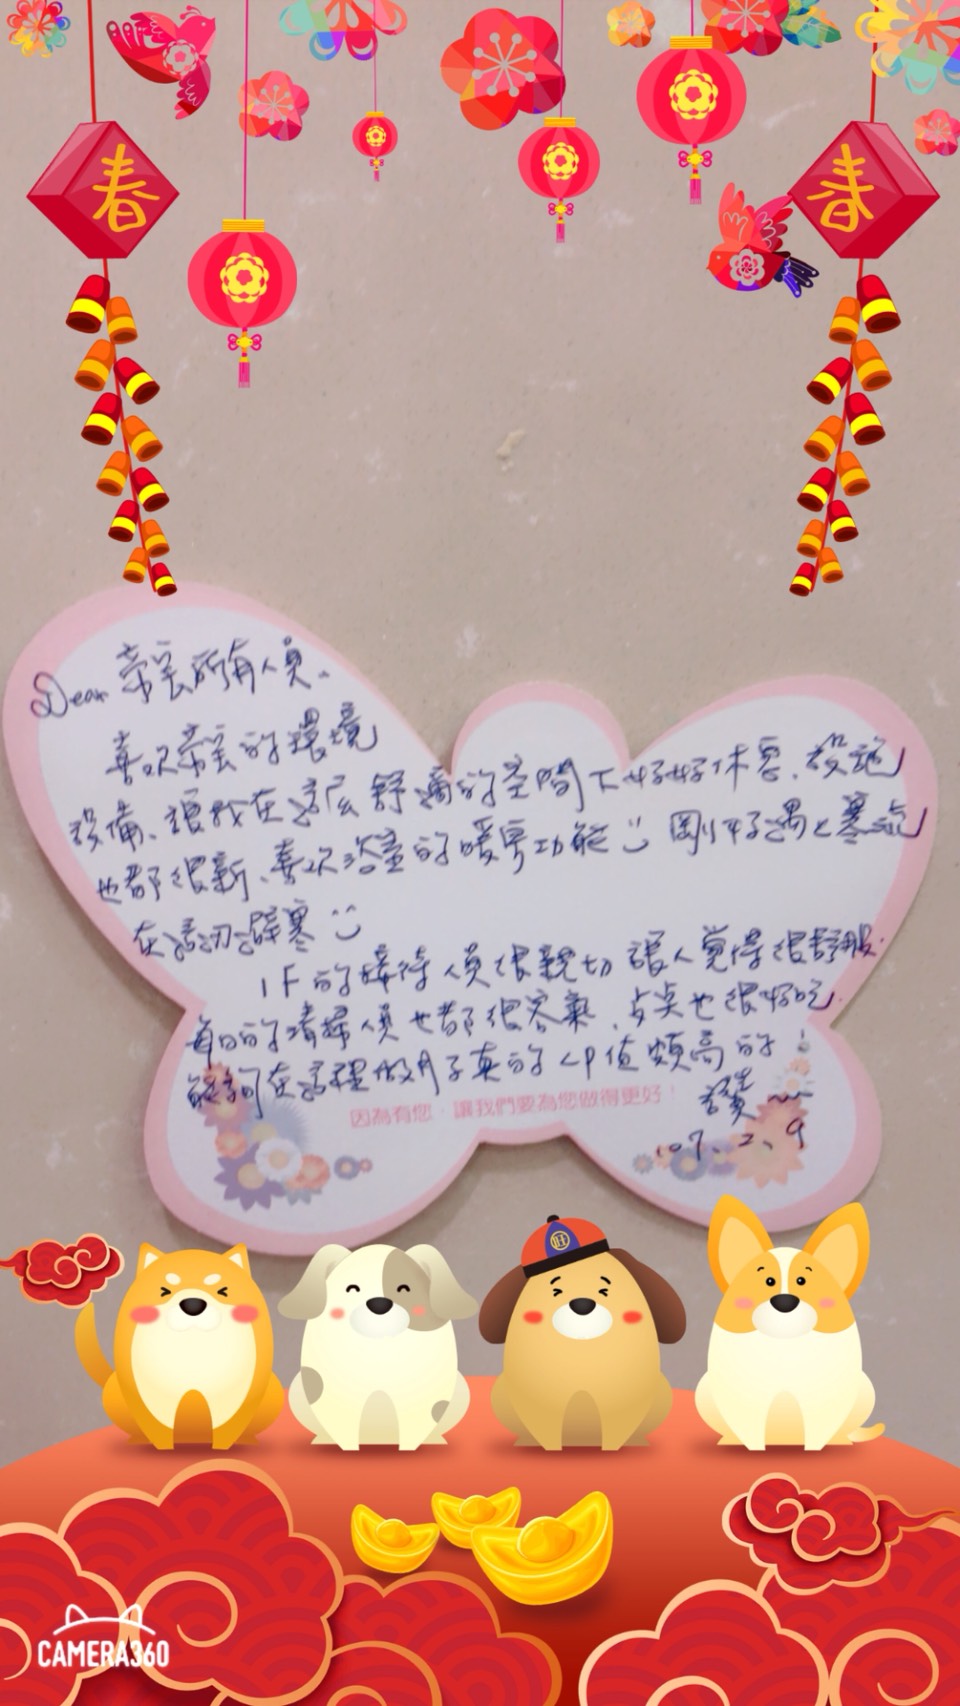 春
春
Dear 榮芸所有人員、
喜歡榮芸的環境
設備、讓我在這麼舒適的空間下好好休息、設施
也都很新、喜歡浴室的暖房功能 剛好遇上寒流
在這切避寒
1F的接待人員很親切 讓人覺得很舒服.
每日的清掃人員也都很客氣、點也很好吃.
能夠在這裡做月子真的CP值頗高的!
讚~~
107.2.9
因為有您,讓我們要為您做得更好!
旺
CAMERA360